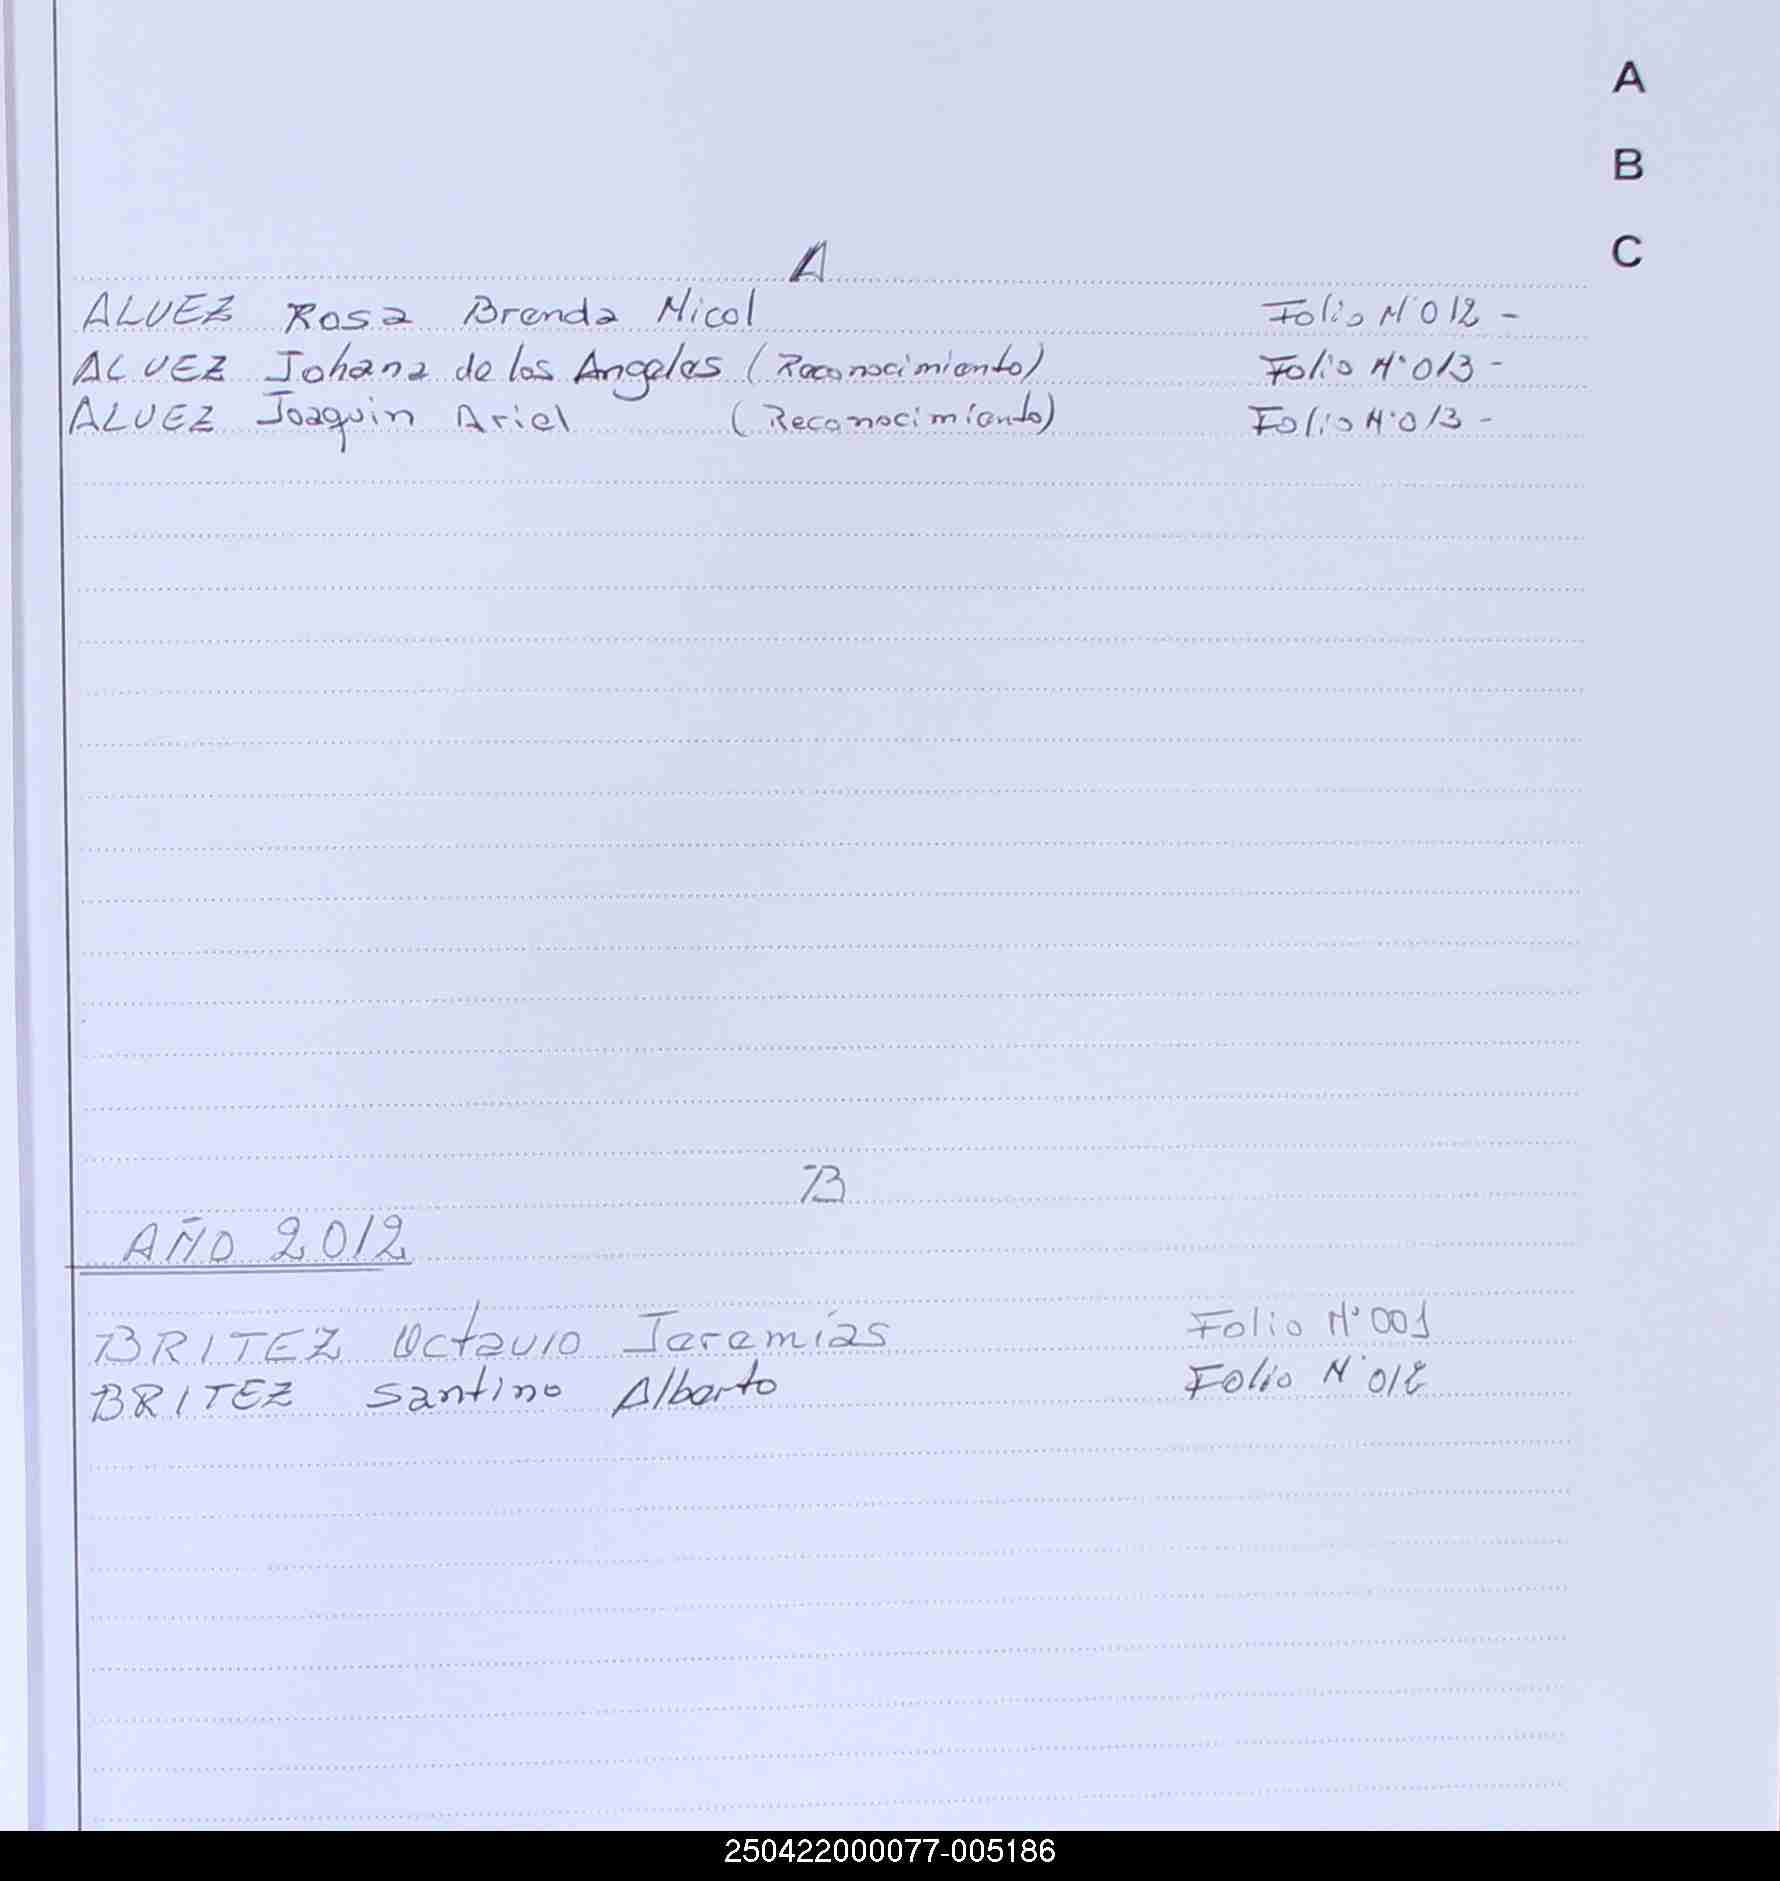 A
B
C
A
ALVEZ Rosa Brenda Nicol Folio N°012 -
ALVEZ Johana de los Angeles (Reconocimiento) Folio N°013 -
ALVEZ Joaquin Ariel (Reconocimiento) Folio N°013 -
B
AÑO 2012
BRITEZ Octavio Jeremías Folio N°001
BRITEZ Santino Alberto Folio N°012
250422000077-005186